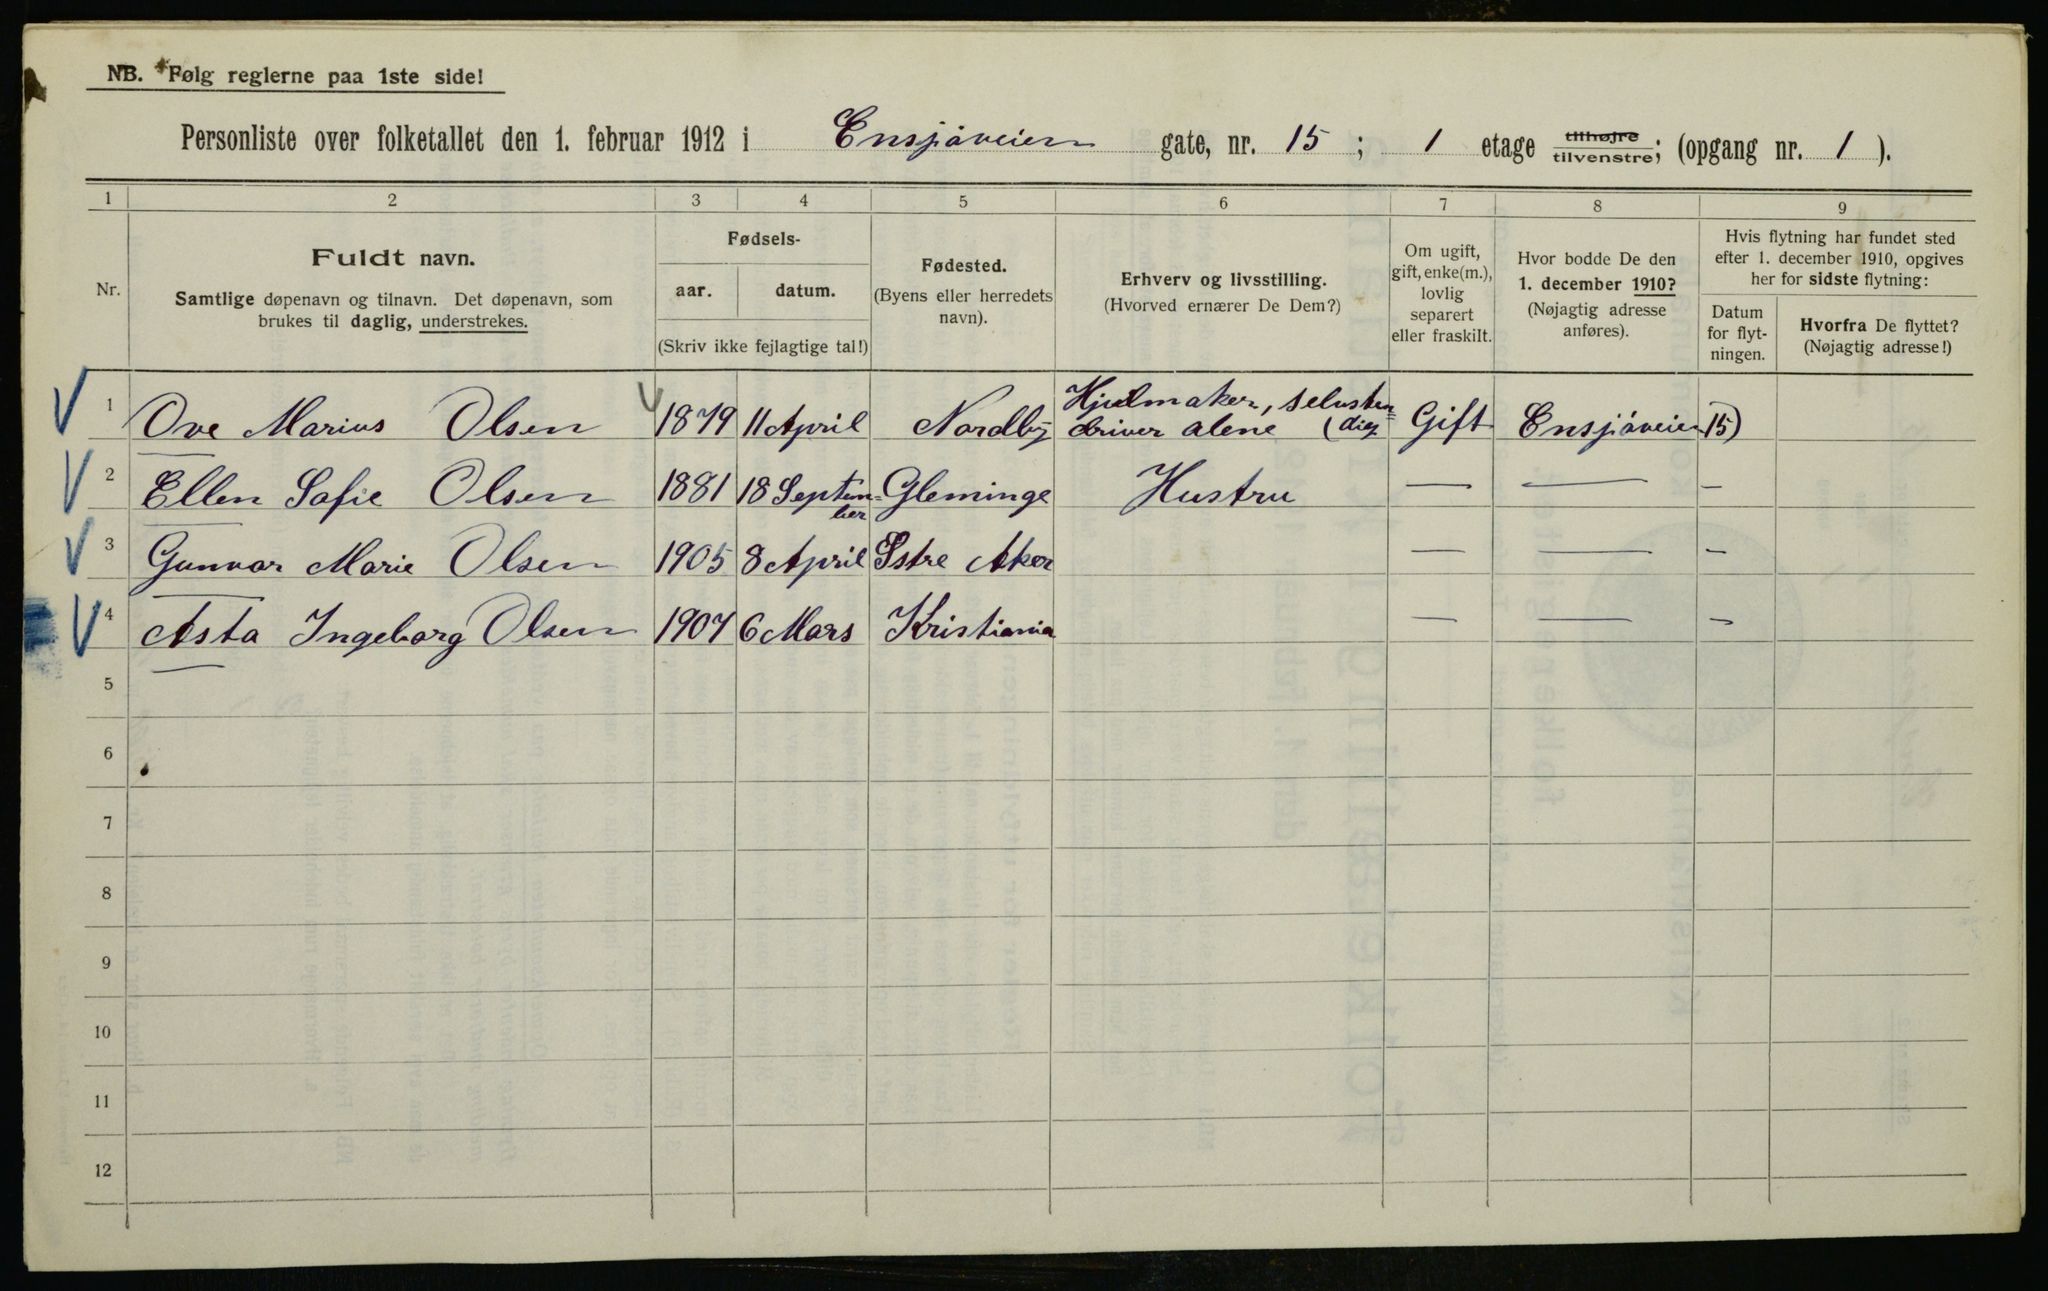 NB. Følg reglerne paa 1ste side!
Personliste over folketallet den 1. februar 1912 i Ensjøveien gate, nr. 15 ; 1 etage tilhøjre tilvenstre; (opgang nr. 1 ).
1 2 3 4 5 6 7 8 9
Nr.
Fuldt navn.
Samtlige døpenavn og tilnavn. Det døpenavn, som
brukes til daglig, understrekes.
Fødsels-
aar. datum.
(Skriv ikke fejlagtige tal!)
Fødested.
(Byens eller herredets
navn).
Erhverv og livsstilling.
(Hvorved ernærer De Dem?)
Om ugift,
gift, enke(m.),
lovlig
separert
eller fraskilt.
Hvor bodde De den
1. december 1910?
(Nøjagtig adresse
anføres).
Hvis flytning har fundet sted
efter 1. december 1910, opgives
her for sidste flytning:
Datum
for flyt-
ningen.
Hvorfra De flyttet?
(Nøjagtig adresse!)
1 Ove Marius Olsen 1879 11 April Nordby Hjulmaker, selvsten-
driver alene (dig Gift Ensjøveien 15)
2 Ellen Sofie Olsen 1881 18 Septem-
ber Gleminge Hustru — — –
3 Gunvor Marie Olsen 1905 8 April Østre Aker — — –
4 Asta Ingeborg Olsen 1907 6 Mars Kristiania — — –
5
6
7
8
9
10
11
12